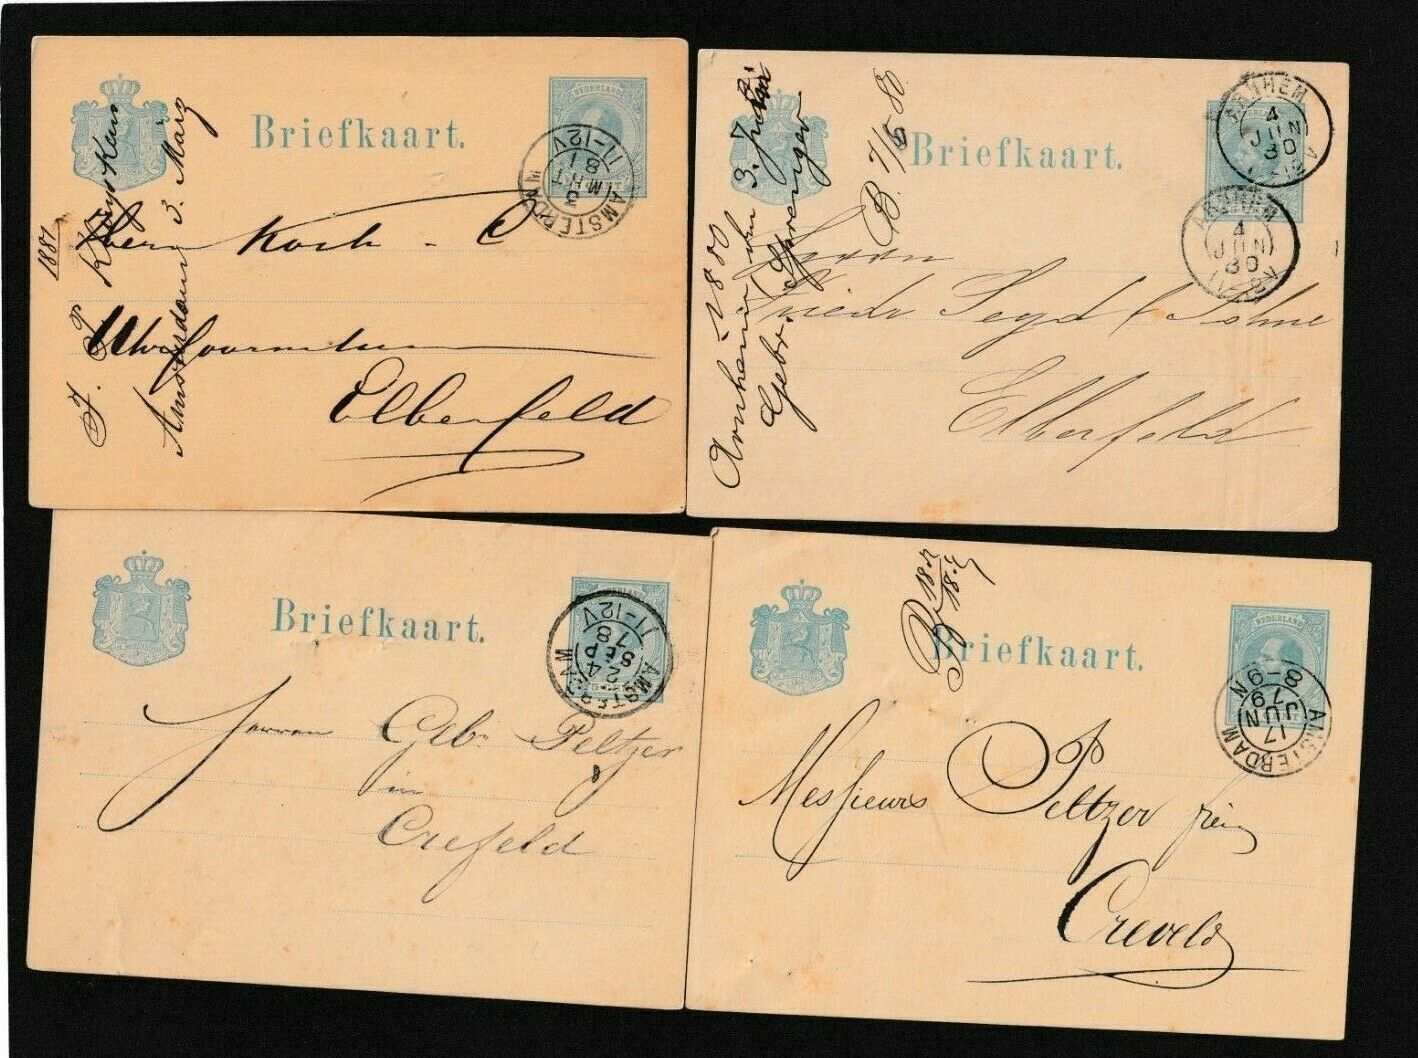 Briefkaart.
NEDERLAND
AMSTERDAM
3
MRT
81
11-12V
1881
Amsterdam 3. März
Koch - C
Elberfeld
Briefkaart.
ARNHEM
4
JUN
80
ARNHEM
4
JUN
80
Arnhem den 3.
1880
Gebr.
B. 7/6 80.
Herrn
Friedr Seyd & Söhne
Elberfeld
Briefkaart.
AMSTERDAM
24
SEP
78
11-12V
Herren Gebr Peltzer
in
Crefeld
Briefkaart.
NEDERLAND
AMSTERDAM
17
JUN
79
8-9N
Messieurs Peltzer frères
Creveld